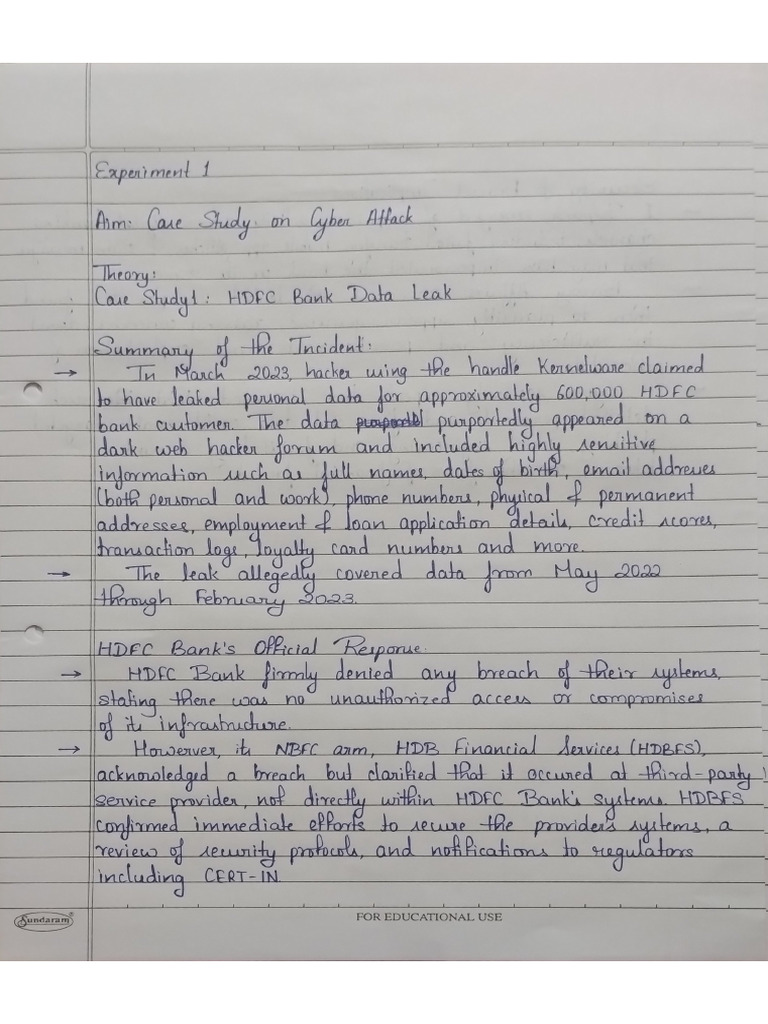 Experiment 1
Aim: Case Study on Cyber Attack
Theory:
Case Study1: HDFC Bank Data Leak
Summary of the Incident:
→ In March 2023, hacker using the handle Kernelware claimed
to have leaked personal data for approximately 600,000 HDFC
bank customer. The data purportedly appeared on a
dark web hacker forum and included highly sensitive
information such as full names, dates of birth, email addresses
(both personal and work), phone numbers, physical & permanent
addresses, employment & loan application details, credit scores,
transaction logs, loyalty card numbers and more.
→ The leak allegedly covered data from May 2022
through February 2023.
HDFC Bank's Official Response:
→ HDFC Bank firmly denied any breach of their systems,
stating there was no unauthorized access or compromises
of its infrastructure.
→ Howerver, its NBFC arm, HDB Financial Services (HDBFS),
acknowledged a breach but clarified that it occured at third-party
service provider, not directly within HDFC Bank's systems. HDBFS
confirmed immediate efforts to secure the providers systems, a
review of security protocols, and notifications to regulators
including CERT-IN.
Sundaram®
FOR EDUCATIONAL USE